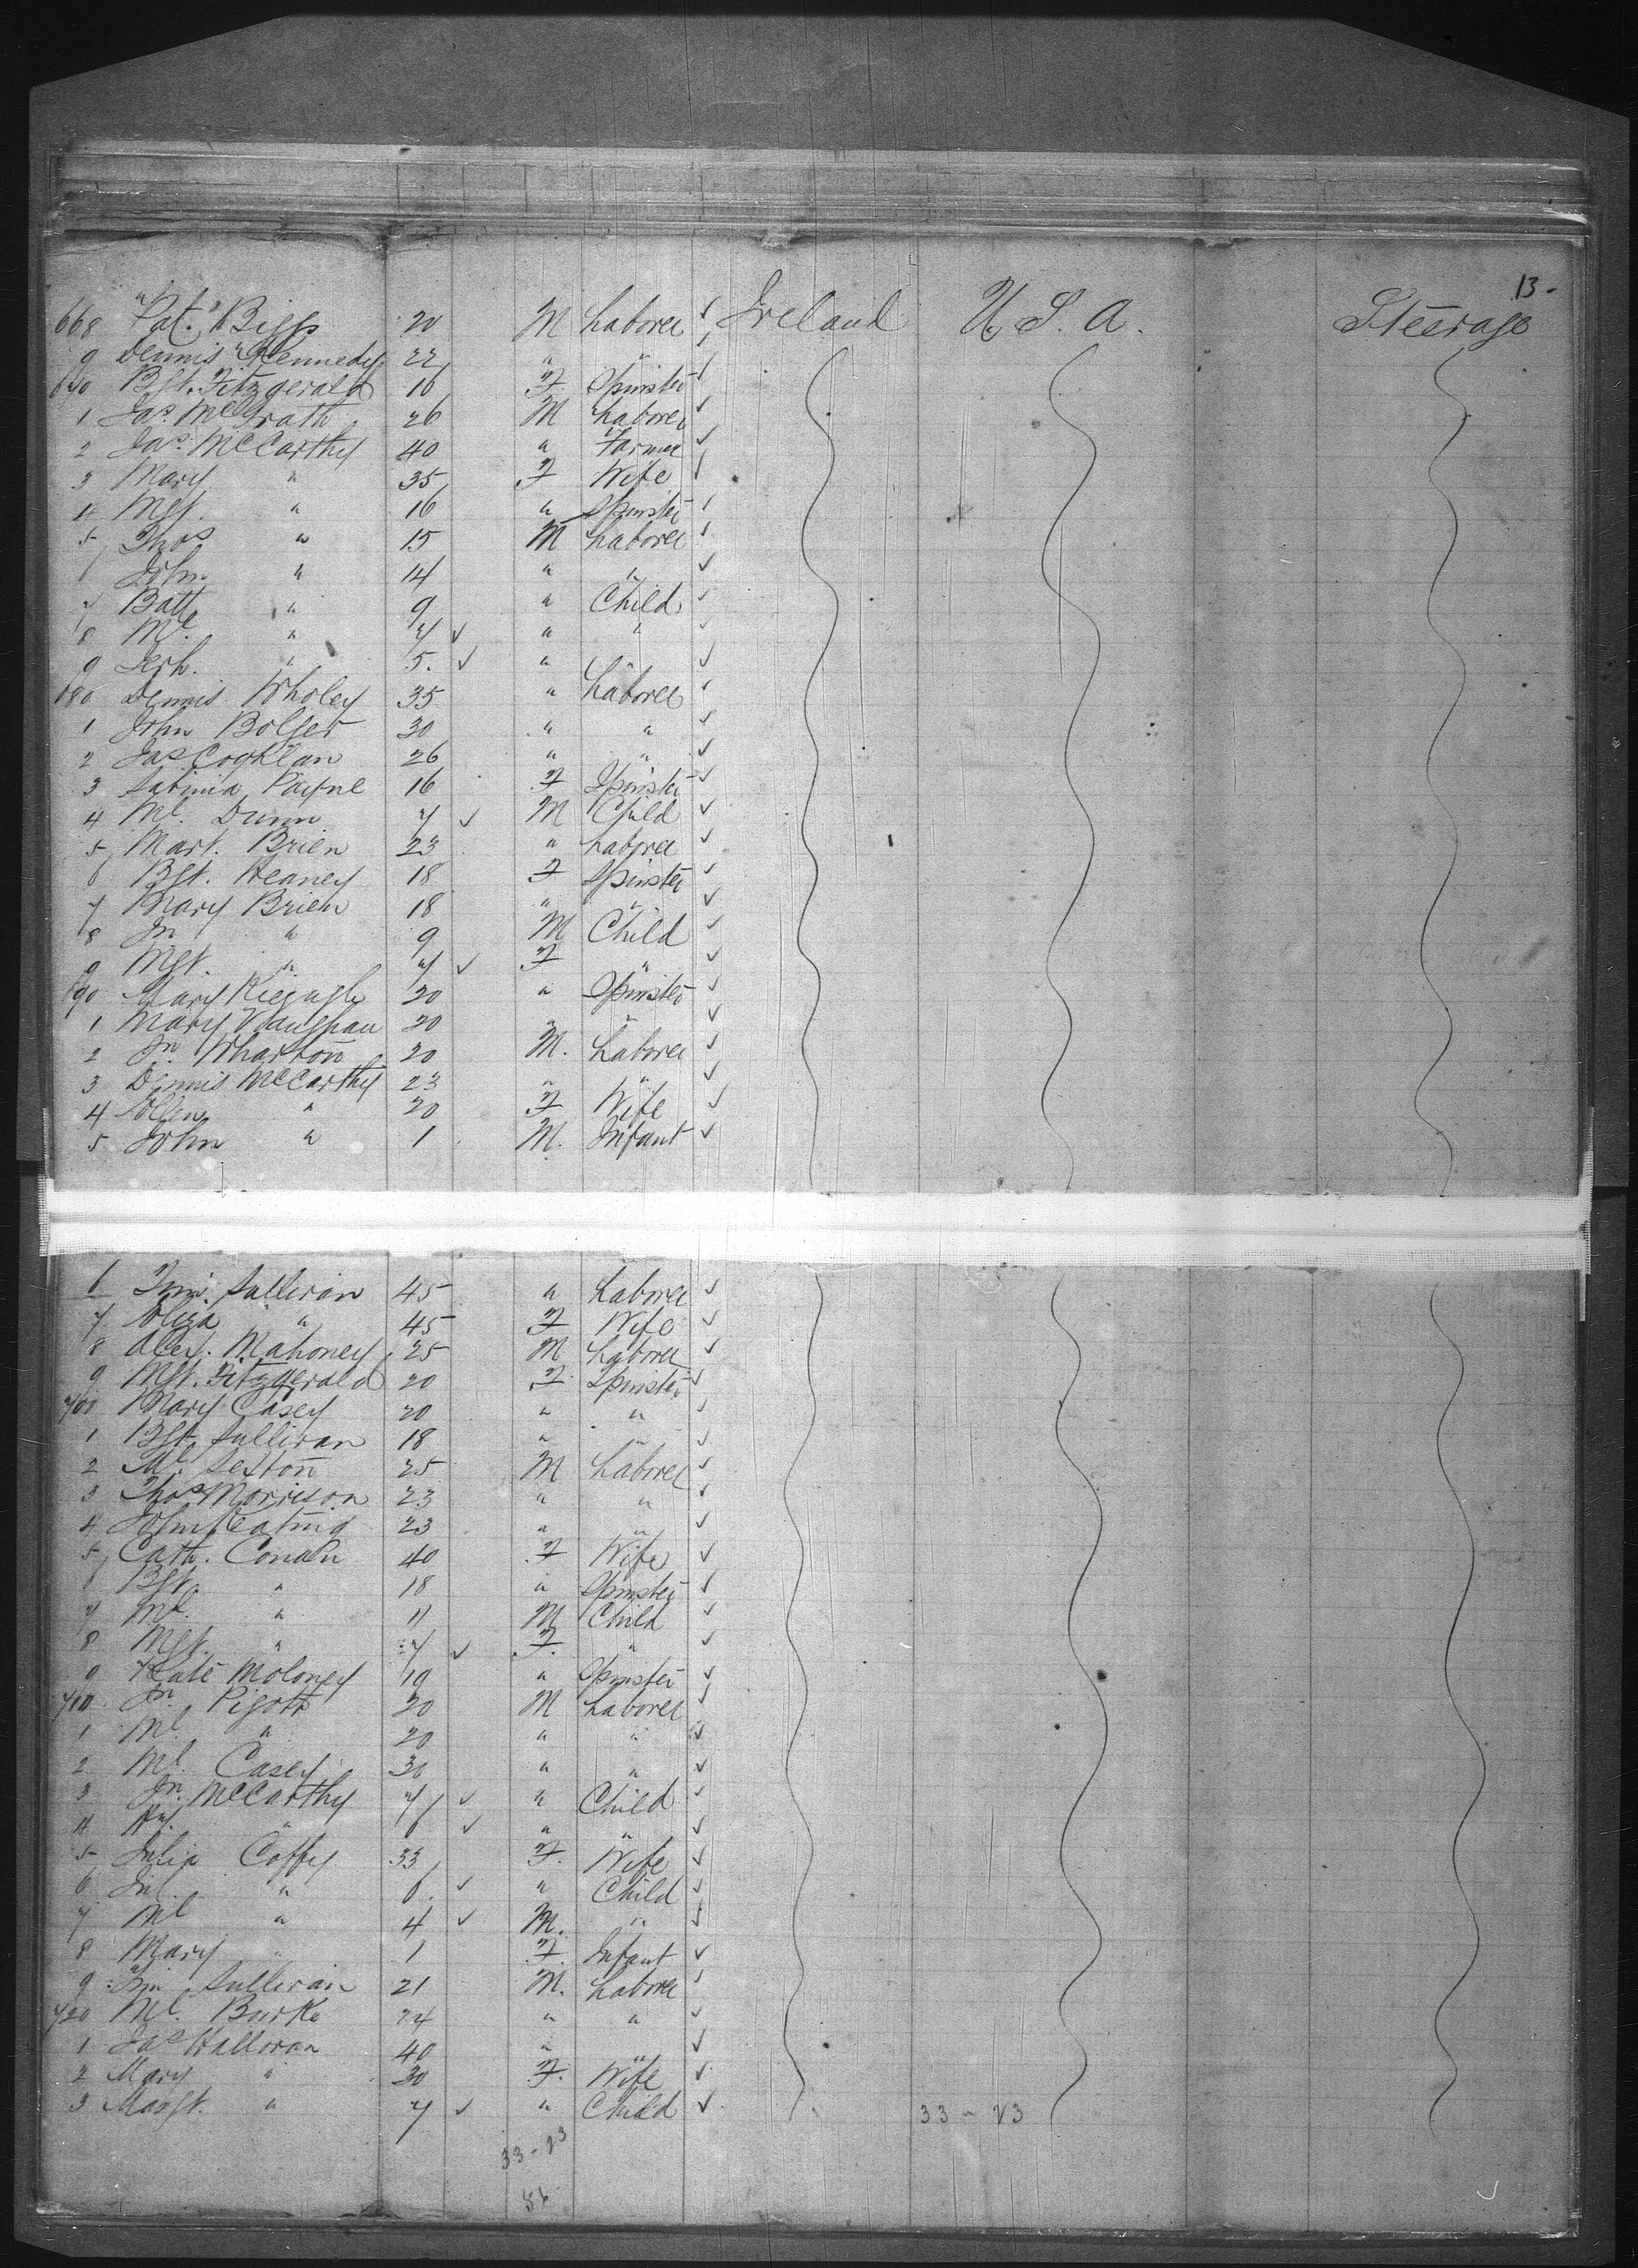 13-
668 "Pat." Biggs 20 M Laborer ✓ Ireland U. S. A. Steerage
9 Dennis Kennedy 22 " " ✓
670 Bgt. Fitzgerald 16 F Spinster ✓
1 Jas. McGrath 26 M Laborer ✓
2 Jas. McCarthy 40 " Farmer ✓
3 Mary " 35 F Wife ✓
4 Mgt. " 16 " Spinster ✓
5 Thos " 15 M Laborer ✓
6 John " 14 " " ✓
7 Batt " 9 " Child ✓
8 Ml. " 7 ✓ " " ✓
9 Jerh. " 5. ✓ " ✓
680 Dennis Wholey 35 " Laborer ✓
1 John Bolger 30 " " ✓
2 Jas Coghlan 26 " " ✓
3 Sabinia Payne 16 F Spinster ✓
4 Ml. Dunn 7 ✓ M Child ✓
5 Mart. Brien 23 " Laborer ✓
6 Bgt. Heaney 18 F Spinster ✓
7 Mary Brien 18 " " ✓
8 Jn " 9 M Child ✓
9 Mgt. " 7 ✓ F " ✓
690 Mary 20 " Spinster ✓
1 Mary Vaughan 20 " " ✓
2 Jn. Wharton 20 M. Laborer ✓
3 Dennis McCarthy 23 " " ✓
4 Ellen " 20 F Wife ✓
5 John " 1 M. Infant ✓
6 Tim. Sullivan 45 " Laborer ✓
7 Eliza " 45 F Wife ✓
8 Alex. Mahoney 25 M Laborer ✓
9 Mgt. Fitzgerald 20 F Spinster ✓
700 Mary Casey 20 " " ✓
1 Bgt. Sullivan 18 " " ✓
2 Ml. Sexton 25 M Laborer ✓
3 Thos Morrison 23 " " ✓
4 John Keating 23 " " ✓
5 Cath. 40 F Wife ✓
6 Bgt. " 18 " Spinster ✓
7 Ml. " 11 M Child ✓
8 Mgt. " 7 ✓ F. " ✓
9 Kate Moloney 19 " Spinster ✓
710 Jn. Pigott 20 M Laborer ✓
1 Ml. " 20 " " ✓
2 Ml. Casey 30 " " ✓
3 Jn. McCarthy 7 ✓ " Child ✓
4 " 6 ✓ " " ✓
5 Julia Coffey 33 F. Wife ✓
6 " 6. ✓ " Child ✓
7 Ml " 4 ✓ M. " ✓
8 Mary " 1 F. Infant ✓
9 Tim Sullivan 21 M. Laborer ✓
720 Ml. Burke 24 " " ✓
1 Jas Halloran 40 " " ✓
2 Mary " 30 F. Wife ✓
3 Margt. " 7 ✓ " Child ✓ 33 - 23
33 - 23
56